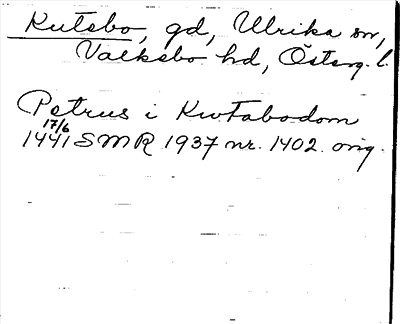 Kutsbo, gd, Ulrika sn,
Valkebo hd, Österg. l.
Petrus i Kwtabodom
17/6
1441 SMR 1937 nr. 1402. orig.